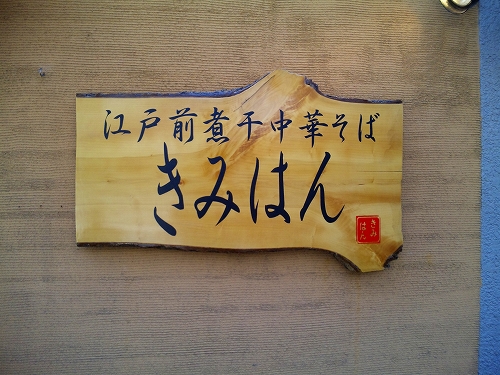 江戸前煮干中華そば
きみはん
きみ
はん